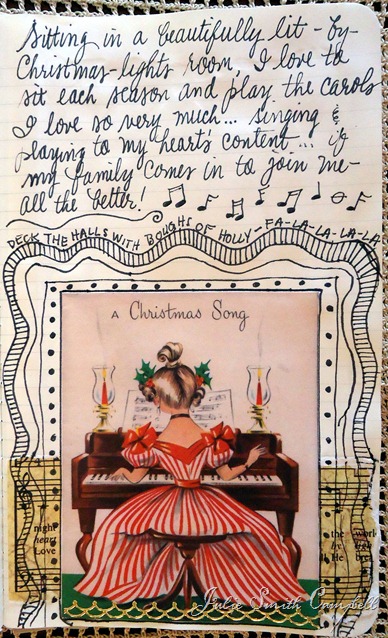 Sitting in a beautifully lit - by -
Christmas-lights room, I love to
sit each season and play the carols
I love so very much... singing &
playing to my heart's content... if
my family comes in to join me -
all the better!
DECK THE HALLS WITH BOUGHS OF HOLLY - FA-LA-LA-LA-LA
A Christmas Song
night
heart
Love
the world
by
He
Julie Smith Campbell